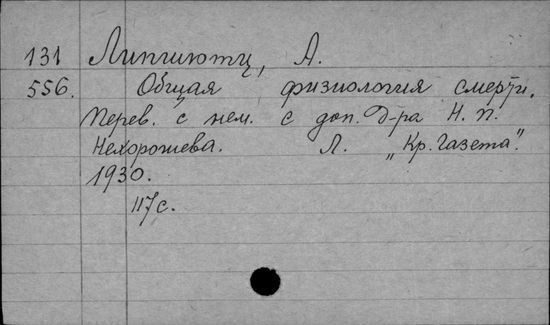 131 Липшютц, А.
556. Общая физиология смерти.
Перев. с нем. с доп. Д-ра Н. П.
Нехорошева. Л. „Кр. Газета".
1930.
117с.